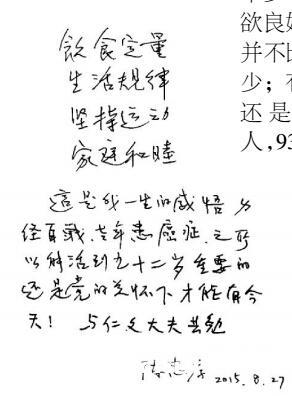 饮食定量
生活规律
坚持运动
家庭和睦
這是我一生的感悟
经百战、老年患癌症、之所
以能活到九十二岁重要的
还是党的关怀下才能有今
天！ 与仁之大夫共勉
陈志
2015.8.27
欲良好
并不比
少；
还是
人，93